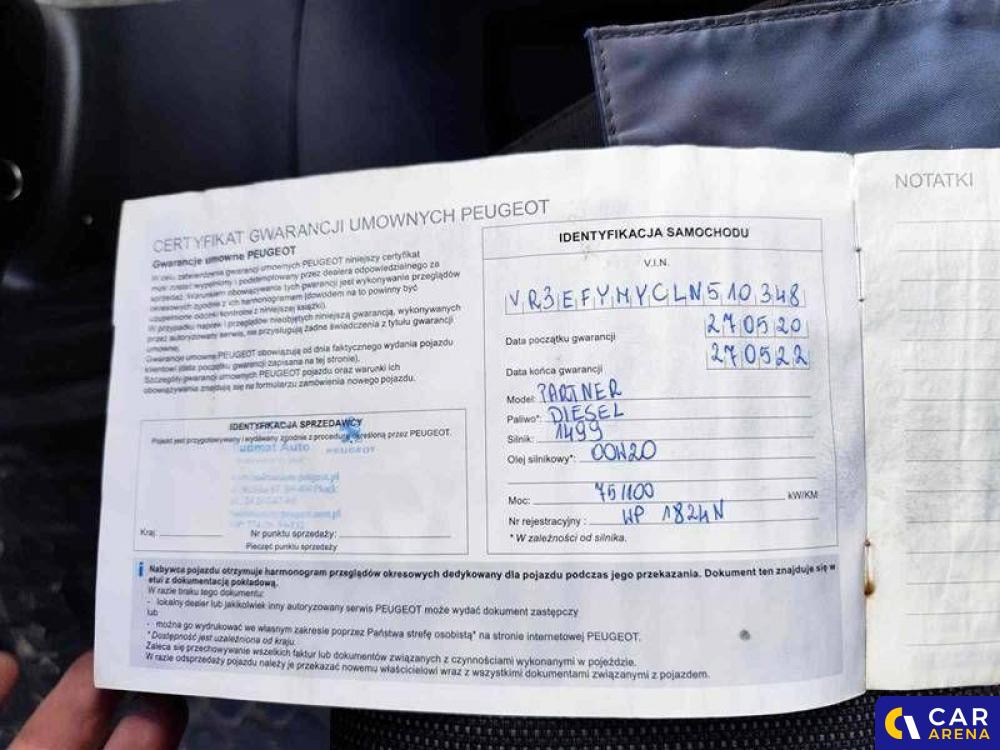 CERTYFIKAT GWARANCJI UMOWNYCH PEUGEOT
Gwarancje umowne PEUGEOT
W celu zatwierdzenia gwarancji umownych PEUGEOT niniejszy certyfikat
musi zostać wypełniony i podstemplowany przez dealera odpowiedzialnego za
sprzedaż. Warunkiem obowiązywania tych gwarancji jest wykonywanie przeglądów
okresowych zgodnie z ich harmonogramem (dowodem na to powinny być
uzupełnione odcinki kontrolne z niniejszej książki).
W przypadku napraw i przeglądów nieobjętych niniejszą gwarancją, wykonywanych
przez autoryzowany serwis, nie przysługują żadne świadczenia z tytułu gwarancji
umownej.
Gwarancje umowne PEUGEOT obowiązują od dnia faktycznego wydania pojazdu
klientowi (data początku gwarancji zapisana na tej stronie).
Szczegóły gwarancji umownych PEUGEOT pojazdu oraz warunki ich
obowiązywania znajdują się na formularzu zamówienia nowego pojazdu.
IDENTYFIKACJA SPRZEDAWCY
Pojazd jest przygotowywany i wydawany zgodnie z procedurą określoną przez PEUGEOT.
Auto
PEUGEOT
Kraj:
Nr punktu sprzedaży:
Pieczęć punktu sprzedaży
IDENTYFIKACJA SAMOCHODU
V.I.N.
VR3EFYHYCLN510348
Data początku gwarancji
270520
Data końca gwarancji
270522
Model: PARTNER
Paliwo*: DIESEL
Silnik: 1499
Olej silnikowy*: 00W20
Moc: 75/100 kW/KM
Nr rejestracyjny: WP 1824N
* W zależności od silnika.
i Nabywca pojazdu otrzymuje harmonogram przeglądów okresowych dedykowany dla pojazdu podczas jego przekazania. Dokument ten znajduje się w
etui z dokumentacją pokładową.
W razie braku tego dokumentu:
- lokalny dealer lub jakikolwiek inny autoryzowany serwis PEUGEOT może wydać dokument zastępczy
lub
- można go wydrukować we własnym zakresie poprzez Państwa strefę osobistą* na stronie internetowej PEUGEOT.
* Dostępność jest uzależniona od kraju.
Zaleca się przechowywanie wszelkich faktur lub dokumentów związanych z czynnościami wykonanymi w pojeździe.
W razie odsprzedaży pojazdu należy je przekazać nowemu właścicielowi wraz z wszystkimi dokumentami związanymi z pojazdem.
NOTATKI
CAR
ARENA